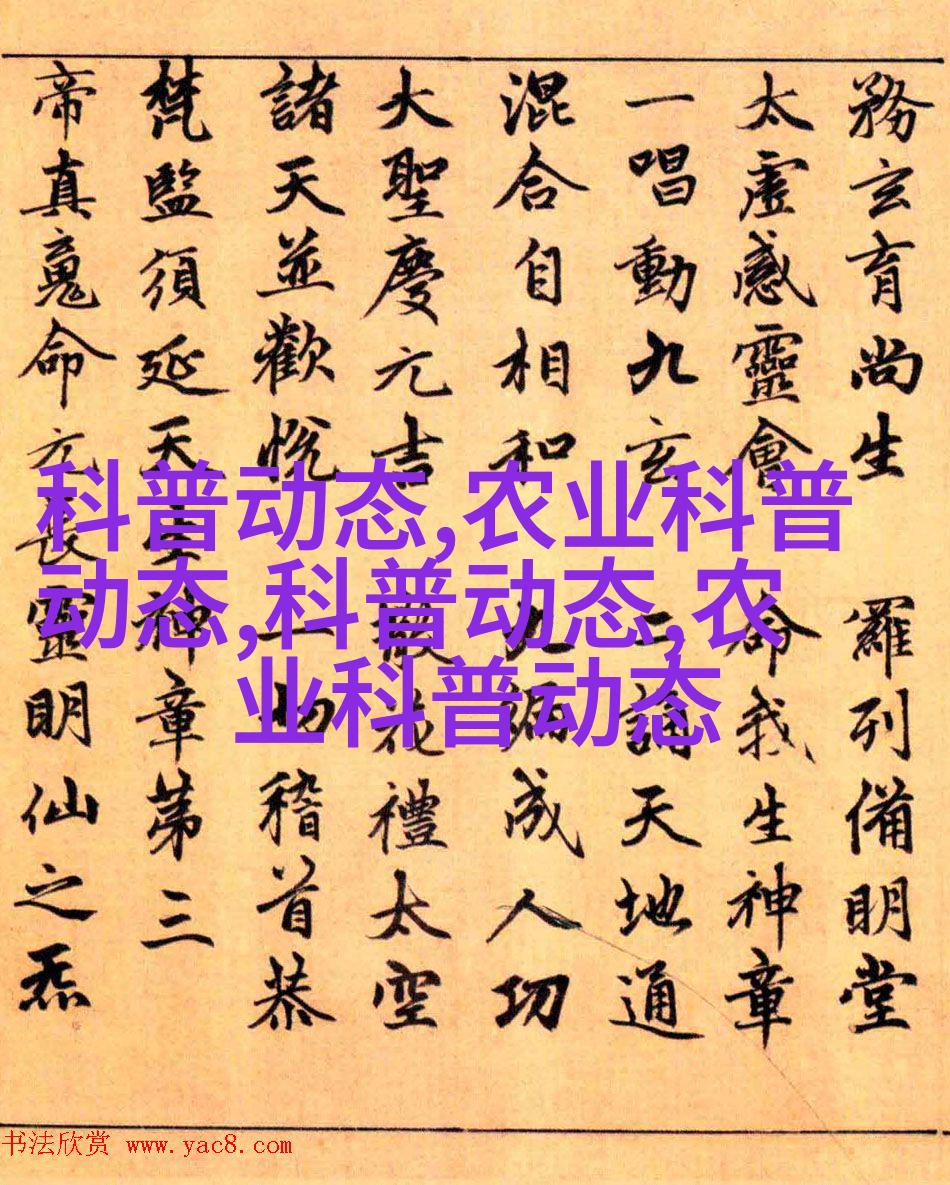 務玄育尚生 羅列備明堂
太虛感靈會 命我生神章
一唱動九玄 二誦天地通
混合自相和 九遍成人功
大聖慶元吉 散花禮太空
諸天並歡悅 一切稽首恭
梵監須延天生神章第三
帝真魂命元長靈明仙之炁
科普动态,农业科普
动态,科普动态,农
业科普动态
书法欣赏 www.yac8.com